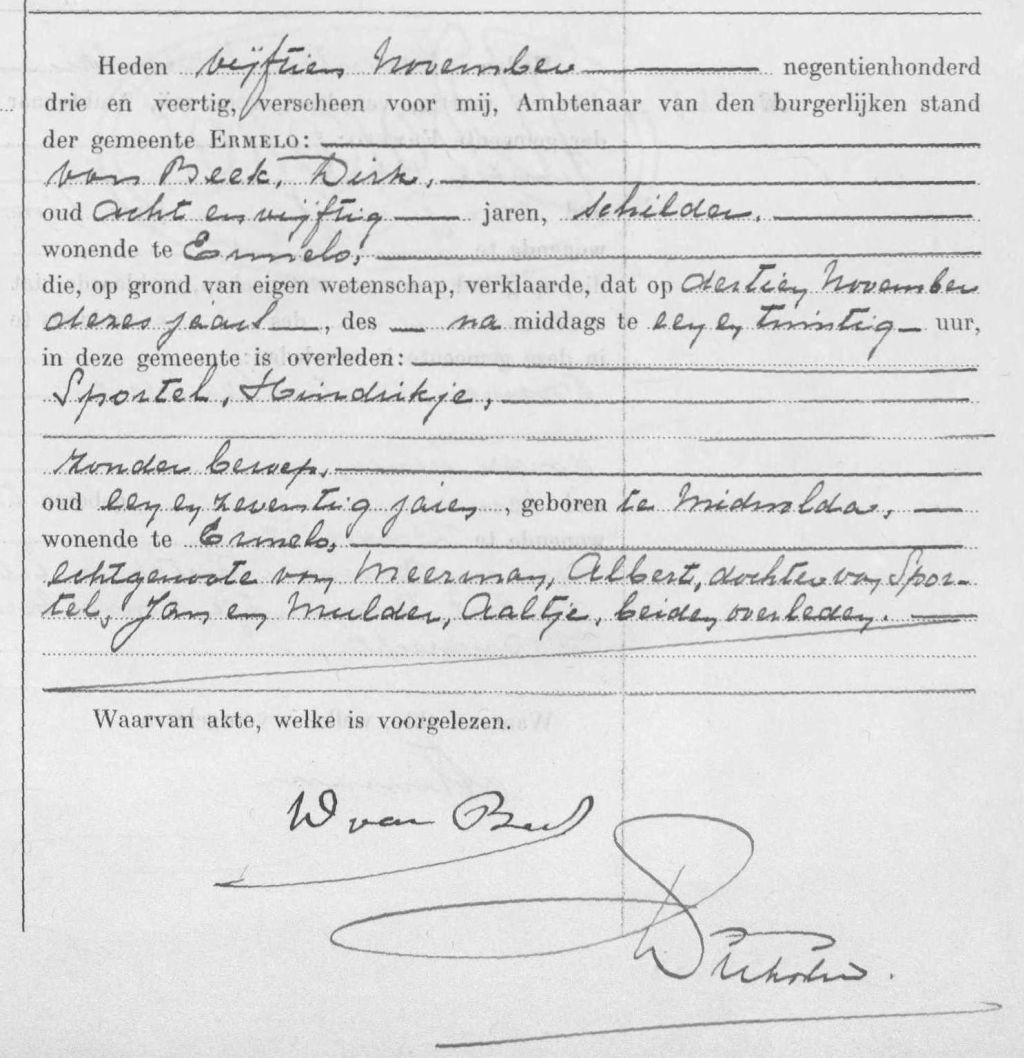 Heden vijftien November negentienhonderd
drie en veertig, verscheen voor mij, Ambtenaar van den burgerlijken stand
der gemeente ERMELO:
van Beek, Dirk,
oud acht en vijftig jaren, schilder,
wonende te Ermelo,
die, op grond van eigen wetenschap, verklaarde, dat op dertien November
dezes jaars, des na middags te een en twintig uur,
in deze gemeente is overleden:
Sportel, Hindrikje,
zonder beroep,
oud een en zeventig jaren, geboren te Midwolda,
wonende te Ermelo,
echtgenoote van Meerman, Albert, dochter van Spor-
tel, Jan en Mulder, Aaltje, beiden overleden.
Waarvan akte, welke is voorgelezen.
D van Beek